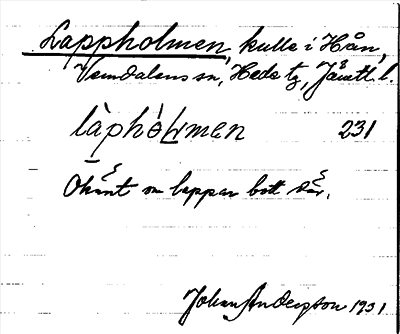 Lappholmen, kulle i Hån,
Vemdalens sn, Hede tg, Jämtl. l.
làphòLmen 231
Okänt om lappar bott där.
Johan Anderzson 1931